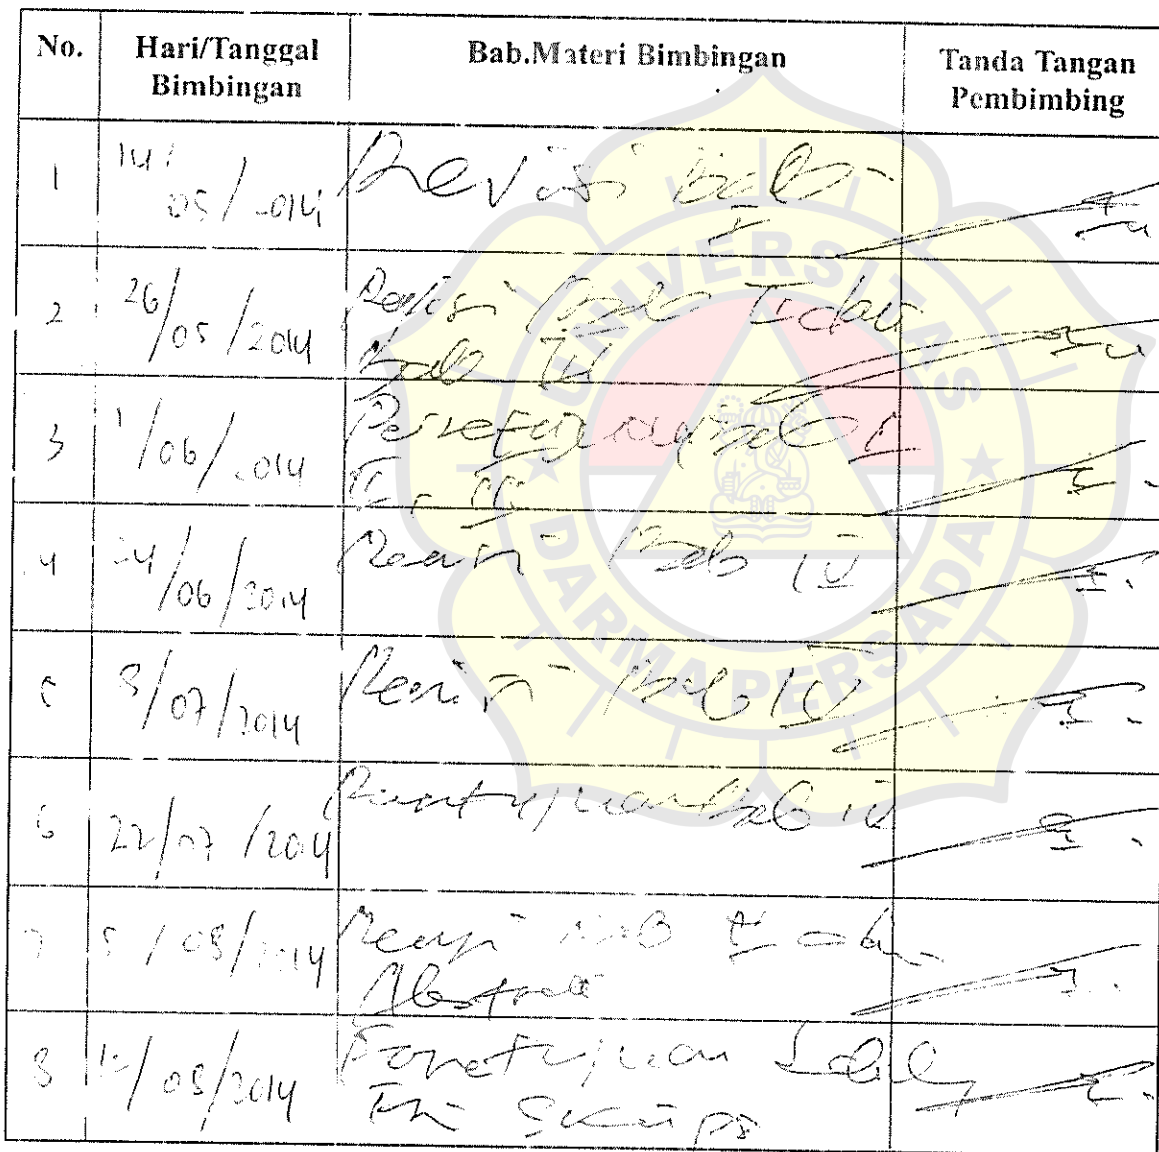 No. Hari/Tanggal Bimbingan Bab.Materi Bimbingan Tanda Tangan Pembimbing
1 14/05/2014 Revisi Bab I
2 26/05/2014 Revisi Bab II dan
bab III
3 /06/2014 Persetujuan bab I
II, III
4 /06/2014 Revisi Bab IV
5 8/07/2014 Revisi Bab IV
6 22/07/2014 Persetujuan Bab IV
7 5/08/2014 Revisi Bab dan
Abstrak
8 /08/2014 Persetujuan
Skripsi
UNIVERSITAS
DARMA PERSADA